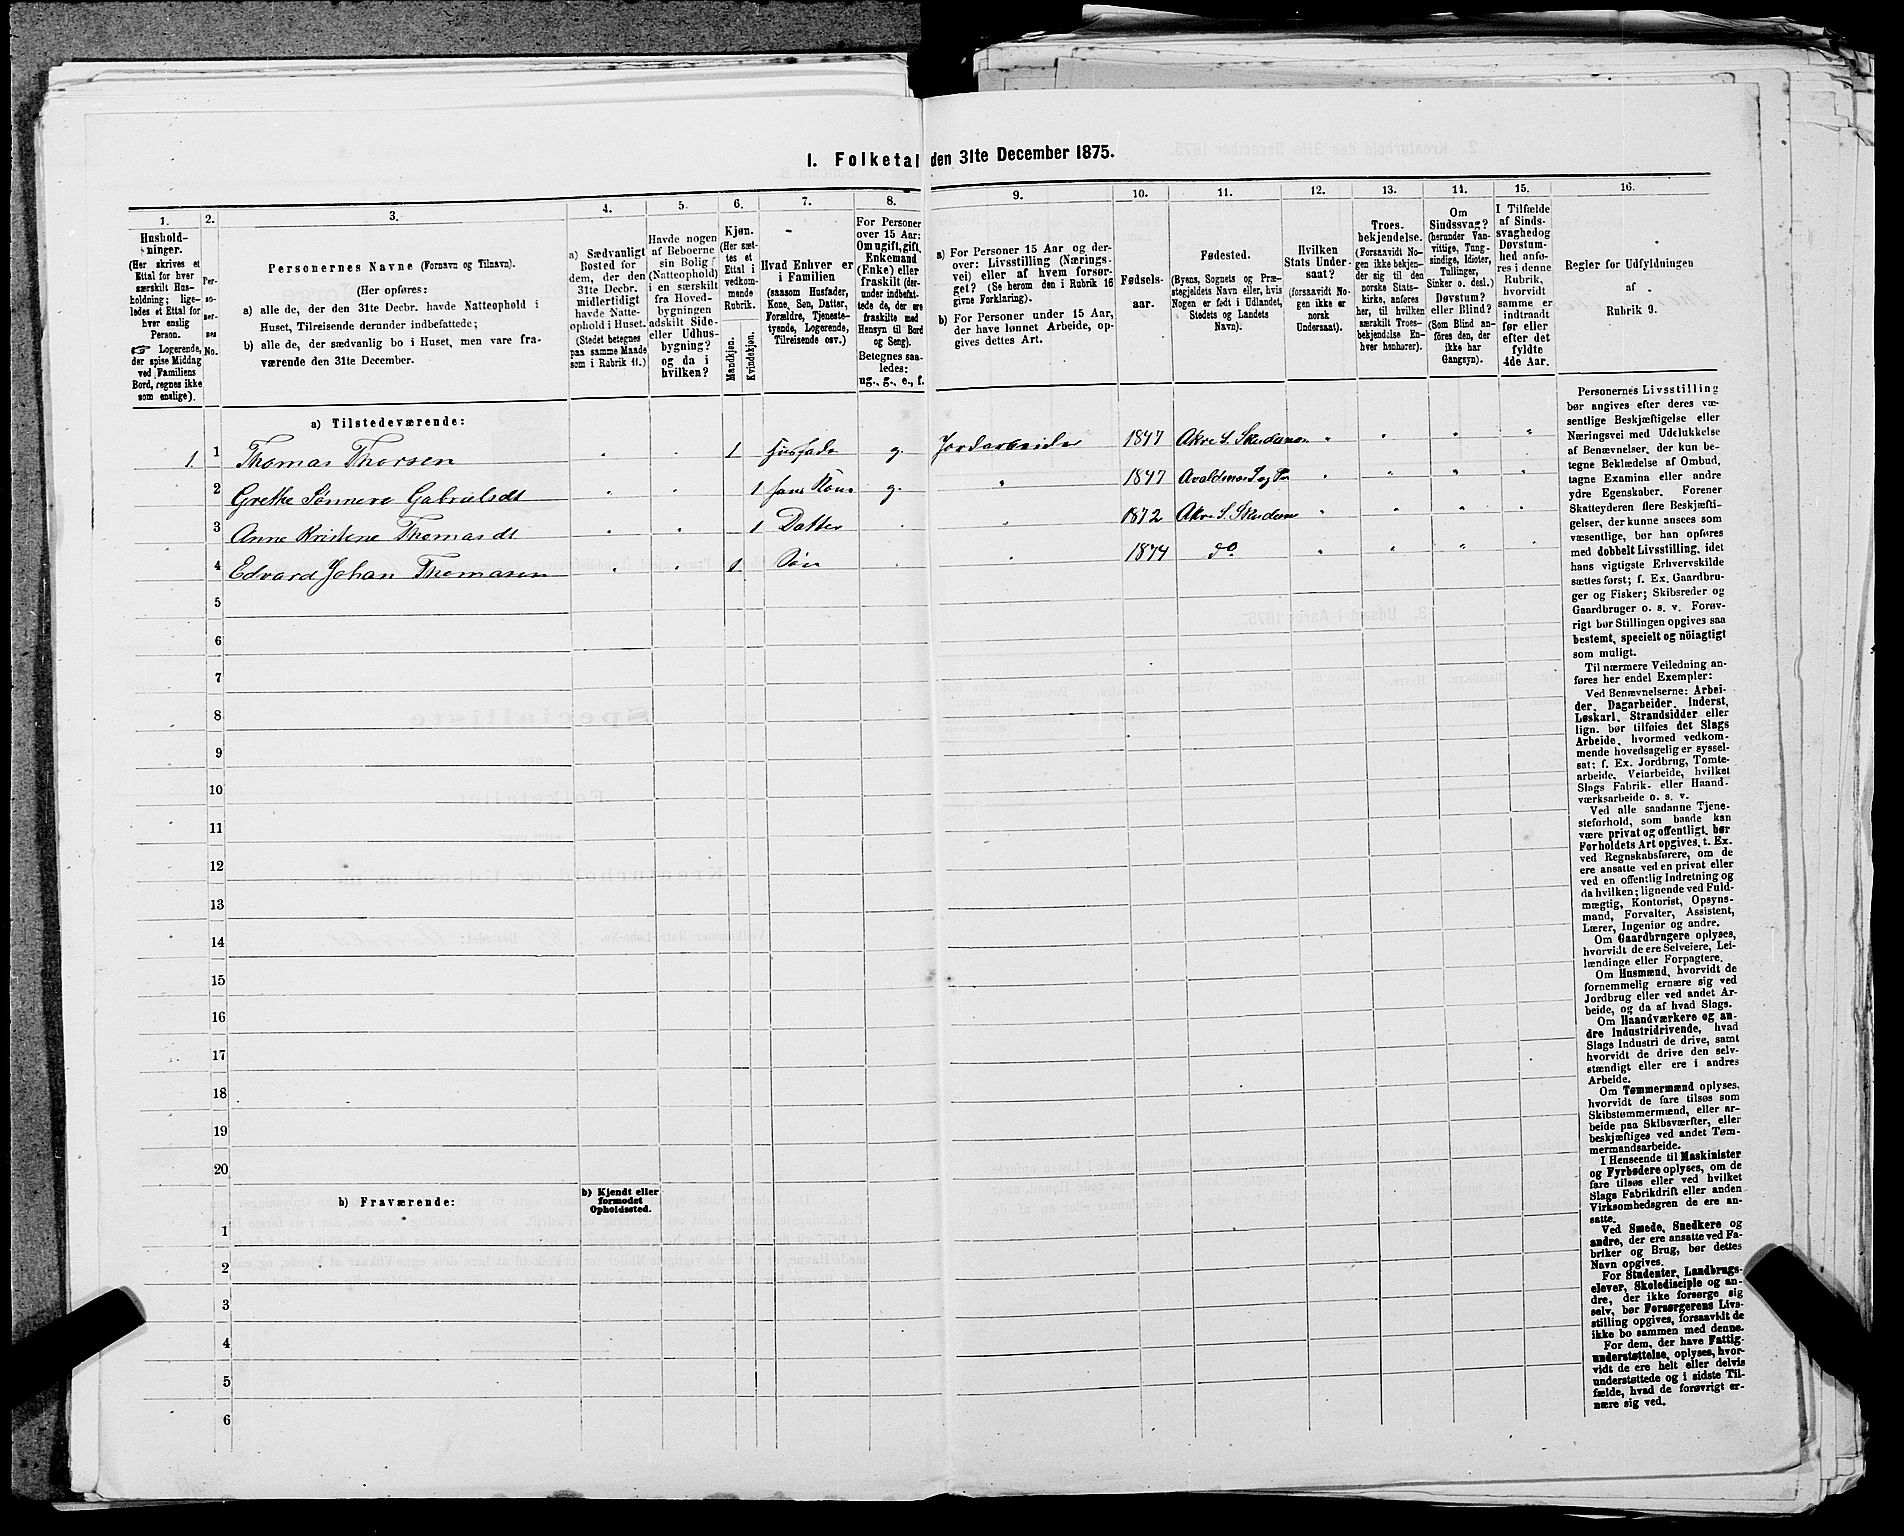 1. Folketal den 31te December 1875.
1. 2. 3. 4. 5. 6. 7. 8. 9. 10. 11. 12. 13. 14. 15. 16.
Hushold-
ninger.
(Her skrives et
Ettal for hver
særskilt Hus-
holdning; lige-
ledes et Ettal for
hver enslig
Person.
☞ Logerende,
der spise Middag
ved Familiens
Bord, regnes ikke
som enslige).
Per-
so-
ner-
nes
No.
Personernes Navne (Fornavn og Tilnavn).
(Her opføres:
a) alle de, der den 31te Decbr. havde Natteophold i
Huset, Tilreisende derunder indbefattede;
b) alle de, der sædvanlig bo i Huset, men vare fra-
værende den 31te December.
a) Sædvanligt
Bosted for
dem, der den
31te Decbr.
midlertidigt
havde Natte-
ophold i Huset.
(Stedet betegnes
paa samme Maade
som i Rubrik 11.)
Havde nogen
af Beboerne
sin Bolig
(Natteophold)
i en særskilt
fra Hoved-
bygningen
adskilt Side-
eller Udhus-
bygning?
og da i
hvilken?
Kjøn.
(Her sæt-
tes et
Ettal i
vedkom-
mende
Rubrik.
Mandkjøn.
Kvindekjøn.
Hvad Enhver er
i Familien
(saasom Husfader,
Kone, Søn, Datter,
Forældre, Tjeneste-
tyende, Logerende,
Tilreisende osv.)
For Personer
over 15 Aar:
Om ugift, gift,
Enkemand
(Enke) eller
fraskilt (der-
under indbefat-
tede de, der ere
fraskilte med
Hensyn til Bord
og Seng).
Betegnes saa-
ledes:
ug., g., e., f.
a) For Personer 15 Aar og der-
over: Livsstilling (Nærings-
vei) eller af hvem forsør-
get? (Se herom den i Rubrik 16
givne Forklaring).
b) For Personer under 15 Aar,
der have lønnet Arbeide, op-
gives dettes Art.
Fødsels-
aar.
Fødested.
(Byens, Sognets og Præ-
stegjeldets Navn eller, hvis
Nogen er født i Udlandet,
Stedets og Landets
Navn).
Hvilken
Stats Under-
saat?
(forsaavidt No-
gen ikke er
norsk
Undersaat).
Troes-
bekjendelse.
(Forsaavidt No-
gen ikke bekjen-
der sig til den
norske Stats-
kirke, anføres
her, til hvilken
særskilt Troes-
bekjendelse En-
hver henhører).
Om
Sindssvag?
(herunder Van-
vittige, Tung-
sindige, Idioter,
Tullinger,
Sinker o. desl.)
Døvstum?
eller Blind?
(Som Blind an-
føres den, der
ikke har
Gangsyn).
I Tilfælde
af Sinds-
svaghed og
Døvstum-
hed anfø-
res i denne
Rubrik,
hvorvidt
samme er
indtraadt
før eller
efter det
fyldte
4de Aar.
Regler for Udfyldningen
af
Rubrik 9.
a) Tilstedeværende:
1. 1 Thomas Thorsen " " 1 husfader g. Jordarbeider 1847 Akre S. Skudenes " " " "
2 Grethe Sønneve Gabrielsdt " " 1 hans Kone g. " 1847 Avaldsnes S og P " " " "
3 Anne Kristene Thomasdt " " 1 Datter " 1872 Akre S. Skudenes " " " "
4 Edvard Johan Thomasen " " 1 Søn " 1874 do " " " "
5
6
7
8
9
10
11
12
13
14
15
16
17
18
19
20
b) Fraværende:
b) Kjendt eller
formodet
Opholdssted.
1
2
3
4
5
6
Personernes Livsstilling
bør angives efter deres væ-
sentlige Beskjæftigelse eller
Næringsvei med Udelukkelse
af Benævnelser, der kun be-
tegne Beklædelse af Ombud,
tagne Examina eller andre
ydre Egenskaber. Forener
Skatteyderen flere Beskjæfti-
gelser, der kunne ansees som
væsentlige, bør han opføres
med dobbelt Livsstilling, idet
hans vigtigste Erhvervskilde
sættes først; f. Ex. Gaardbru-
ger og Fisker; Skibsreder og
Gaardbruger o. s. v. Forøv-
rigt bør Stillingen opgives saa
bestemt, specielt og nöiagtigt
som muligt.
Til nærmere Veiledning an-
føres her endel Exempler:
Ved Benævnelserne: Arbei-
der, Dagarbeider, Inderst,
Løskarl, Strandsidder eller
lign. bør tilføies det Slags
Arbeide, hvormed vedkom-
mende hovedsagelig er syssel-
sat; f. Ex. Jordbrug, Tomte-
arbeide, Veiarbeide, hvilket
Slags Fabrik- eller Haand-
værksarbeide o. s. v.
Ved alle saadanne Tjene-
steforhold, som baade kan
være privat og offentligt, bør
Forholdets Art opgives, t. Ex.
ved Regnskabsførere, om de
ere ansatte ved en privat eller
ved en offentlig Indretning og
da hvilken; lignende ved Fuld-
mægtig, Kontorist, Opsyns-
mand, Forvalter, Assistent,
Lærer, Ingeniør og andre.
Om Gaardbrugere oplyses,
hvorvidt de ere Selveiere, Lei-
lændinge eller Forpagtere.
Om Husmænd, hvorvidt de
fornemmelig ernære sig ved
Jordbrug eller ved andet Ar-
beide, og da af hvad Slags.
Om Haandværkere og an-
dre Industridrivende, hvad
Slags Industri de drive, samt
hvorvidt de drive den selv-
stændigt eller ere i andres
Arbeide.
Om Tømmermænd oplyses,
hvorvidt de fare tilsøs som
Skibstømmermænd, eller ar-
beide paa Skibsværfter, eller
beskjæftiges ved andet Tøm-
mermandsarbeide.
I Henseende til Maskinister
og Fyrbødere oplyses, om de
fare tilsøs eller ved hvilket
Slags Fabrikdrift eller anden
Virksomhedsgren de ere an-
satte.
Ved Smede, Snedkere og
andre, der ere ansatte ved Fa-
briker og Brug, bør dettes
Navn opgives.
For Studenter, Landbrugs-
elever, Skoledisciple og an-
dre, der ikke forsørge sig
selv, bør Forsørgerens Livs-
stilling opgives, forsaavidt de
ikke bo sammen med denne.
For dem, der have Fattig-
understøttelse, oplyses, hvor-
vidt de ere helt eller delvis
understøttede og i sidste Til-
fælde, hvad de forøvrigt er-
nære sig ved.